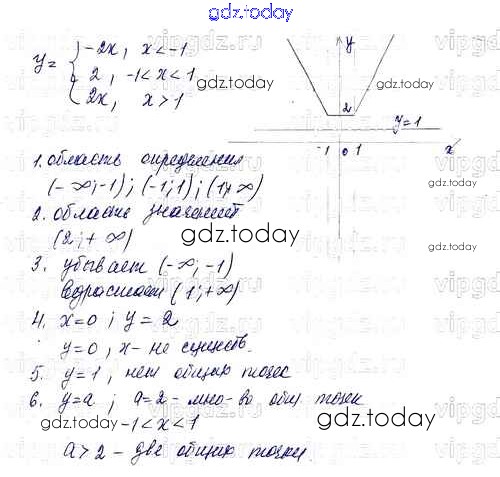 gdz.today
y = { -2x, x < -1
2, -1 < x < 1
2x, x > 1
y
2
y=1
-1 0 1 x
gdz.today
gdz.today
1. область определения
(-∞;-1); (-1;1); (1;+∞)
2. область значений
(2;+∞)
gdz.today
gdz.today
3. убывает (-∞;-1)
возрастает (1;+∞)
4. x=0; y=2
y=0, x - не существ.
gdz.today
5. y=1, нет общих точек
6. y=a; a=2 - мно-во общ точек
gdz.today -1<x<1
gdz.today
a>2 - две общих точки.